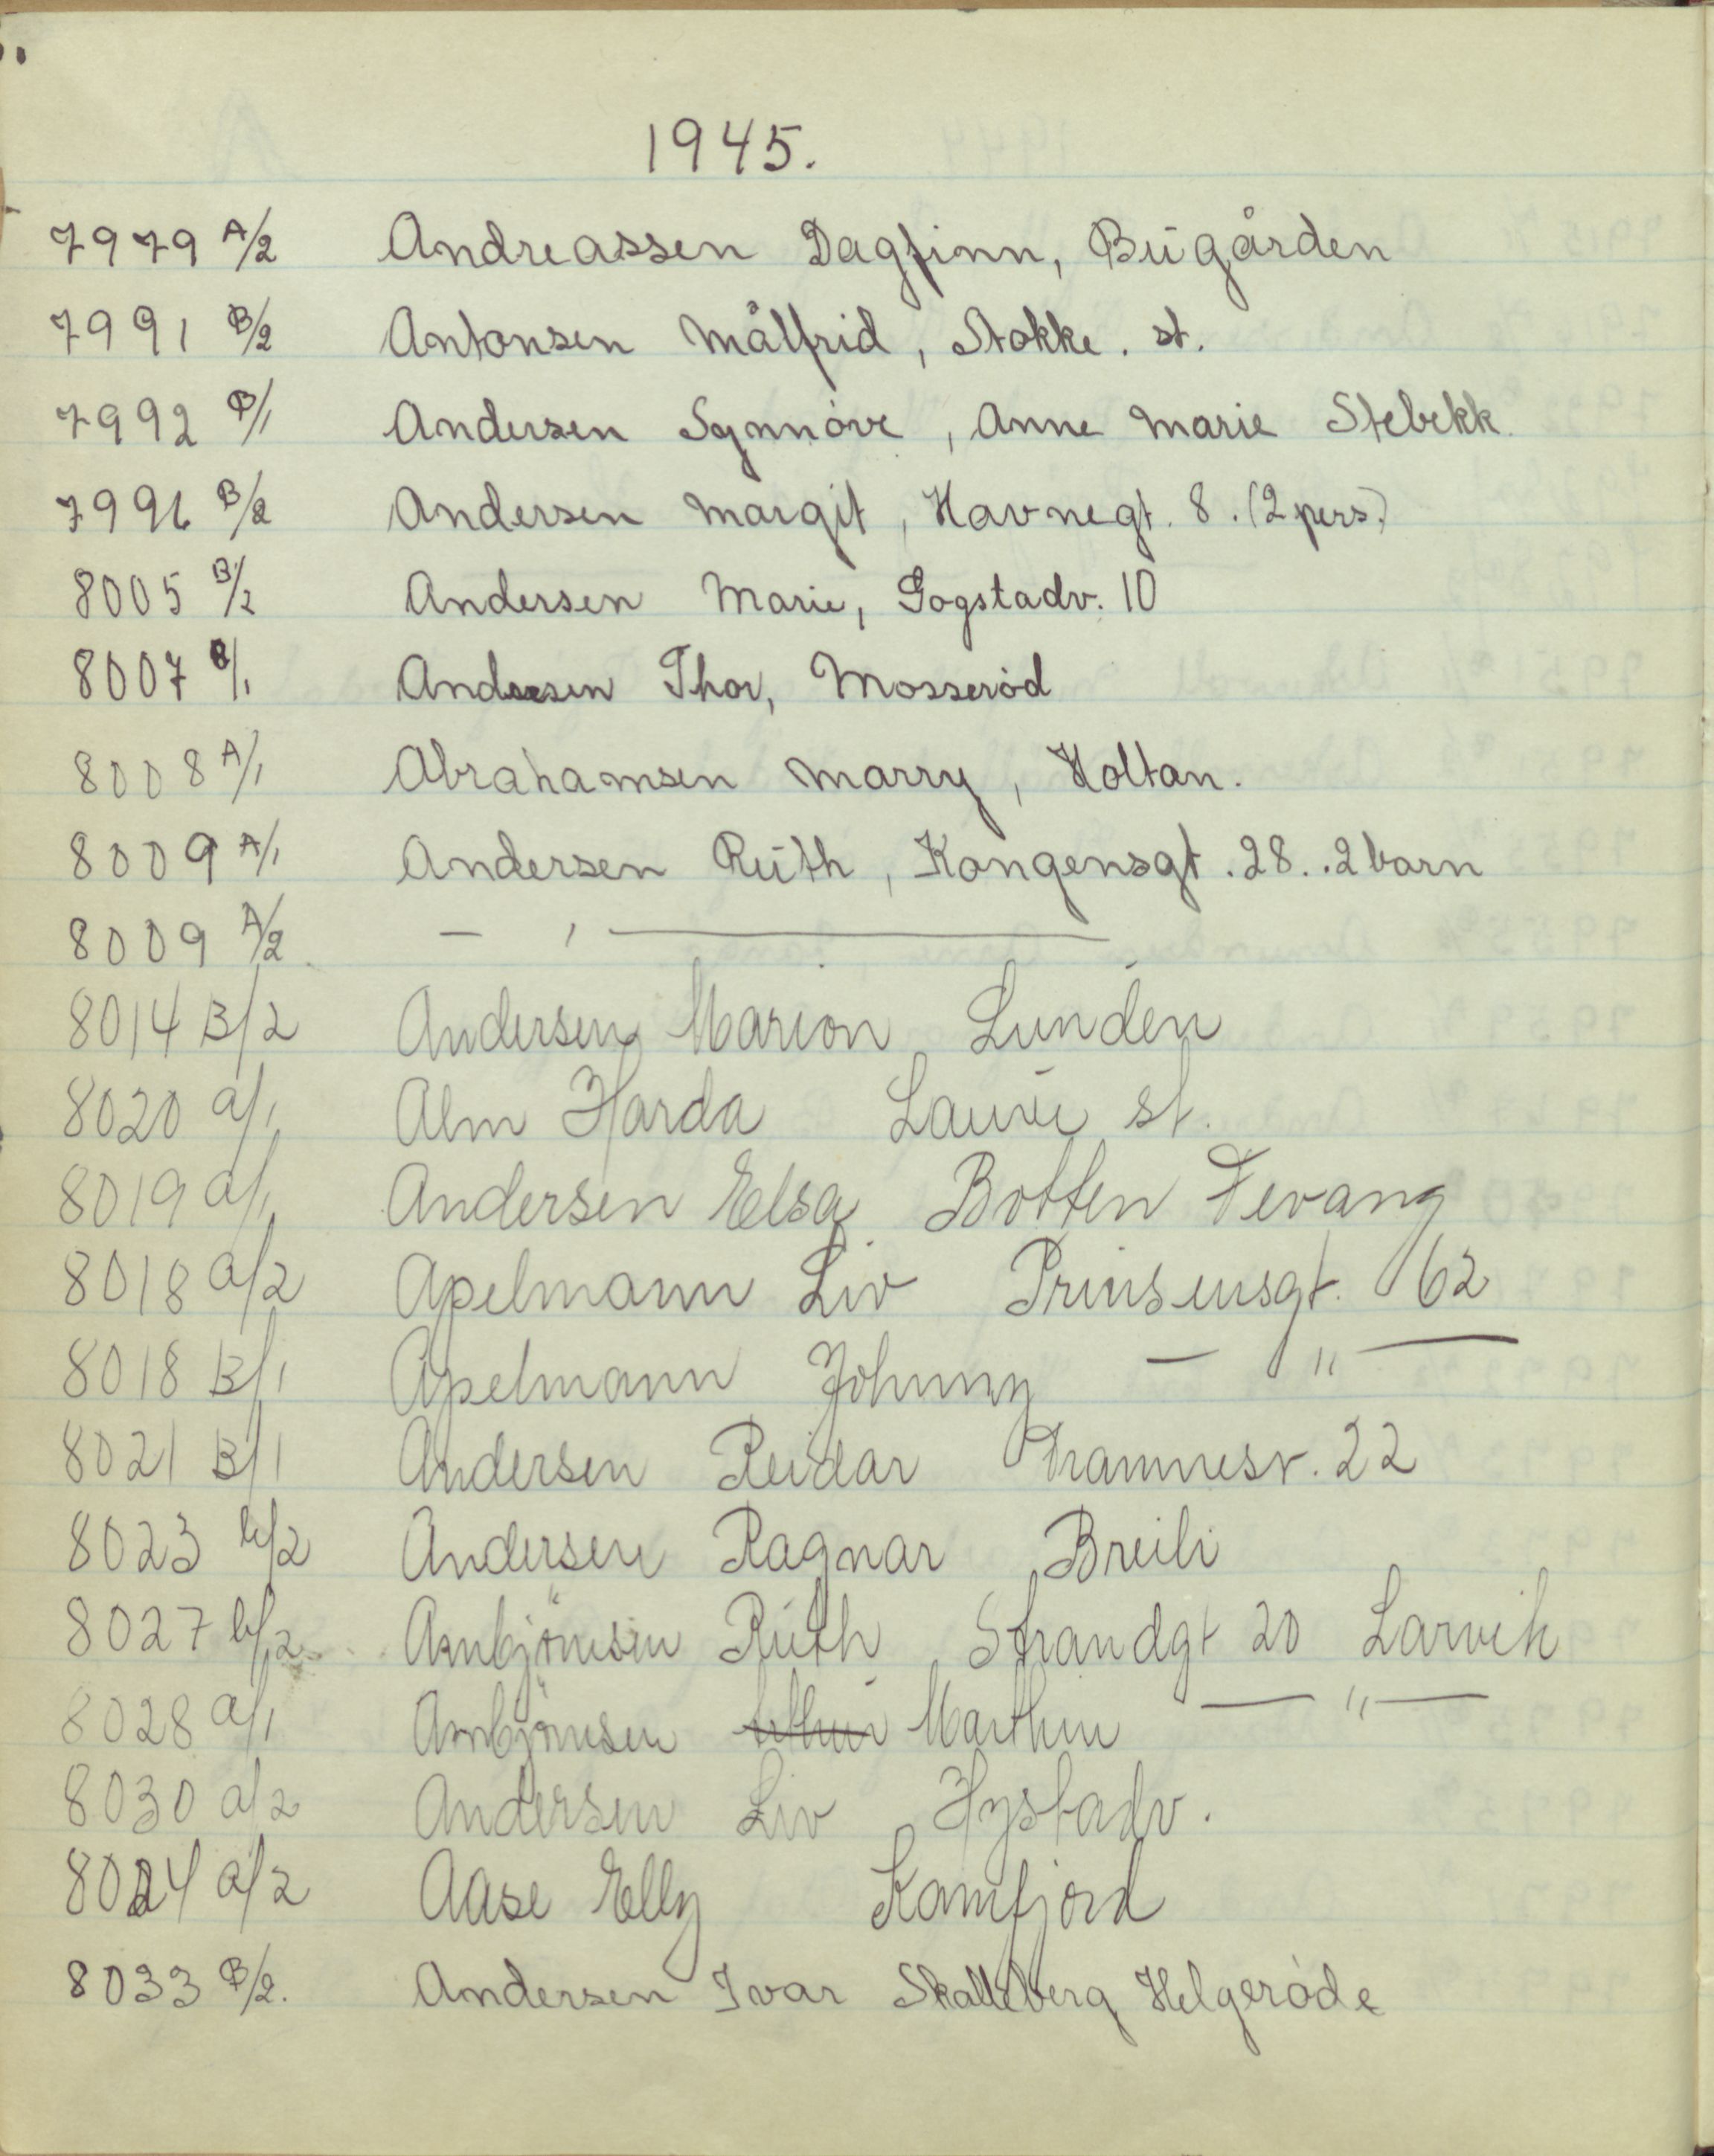 1945.
7979 A/2 Andreassen Dagfinn, Bugården
7991 B/2 Antonsen Målfrid, Stokke. st.
7992 B/1 Andersen Synnöve, Anne Marie Stebekk
7996 B/2 Andersen Margit, Havnegt. 8. (2 pers.)
8005 B/2 Andersen Marie, Gogstadv. 10
8007 B/1 Andersen Thor, Mosseröd
8008 A/1 Abrahamsen Marry, Holtan.
8009 A/1 Andersen Ruth, Kongensgt. 28. .2 barn
8009 A/2 — , —
8014 B/2 Andersen Marion Lunden
8020 a/1 Alm Harda Lauve st.
8019 a/1 Andersen Elsa Botten Tevang
8018 a/2 Apelmann Liv Prinsensgt. 62
8018 B/1 Apelmann Johnny — " —
8021 B/1 Andersen Reidar Framnesv. 22
8023 b/2 Andersen Ragnar Breili
8027 b/2 Ambjörnsen Ruth Strandgt 20 Larvik
8028 a/1 Ambjörnsen Marthin — " —
8030 a/2 Andersen Liv Hystadv.
8024 a/2 Aase Elly Kamfjord
8033 B/2. Andersen Ivar Skalleberg Helgeröde